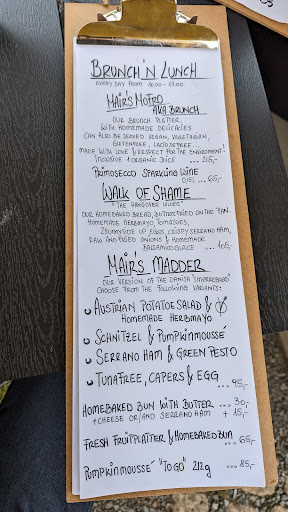 BRUNCH'N LUNCH
EVERY DAY FROM 10.00-17.00
MAIR'S MOTRO
AKA BRUNCH
OUR BRUNCH PLATTER
WITH HOMEMADE DELICACIES
CAN ALSO BE SERVED VEGAN, VEGETARIAN,
GLUTENFREE, LACTOSEFREE...
MADE WITH LOVE & RESPECT FOR THE ENVIROMENT!
INCLUSIVE 1 ORGANIC JUICE ... 215,-
PRIMOSECCO SPARKLING WINE
0,15L ... 65,-
WALK OF SHAME
"THE HANGOVER KILLER"
OUR HOMEBAKED BREAD, BUTTERFRIED ON THE PAN.
HOMEMADE HERBMAYO, TOMATOES,
2 SUNNYSIDE UP EGGS, CRISPY SERRANO HAM,
RAW AND FRIED ONIONS & HOMEMADE
BALSAMICO GLACE ... 105,-
MAIR'S MADDER
OUR VERSION OF THE DANISH SMØRREBRØD
CHOOSE FROM THE FOLLOWING VARIANTS:
AUSTRIAN POTATOESALAD &
HOMEMADE HERBMAYO
SCHNITZEL & PUMPKINMOUSSÉ
SERRANO HAM & GREEN PESTO
TUNAFREE, CAPERS & EGG
... 95,-
HOMEBAKED BUN WITH BUTTER ... 30,-
+ CHEESE OR/AND SERRANO HAM + 15,-
FRESH FRUITPLATTER & HOMEBAKED BUN ... 65,-
PUMPKINMOUSSÉ "TO GO" 212g ... 85,-